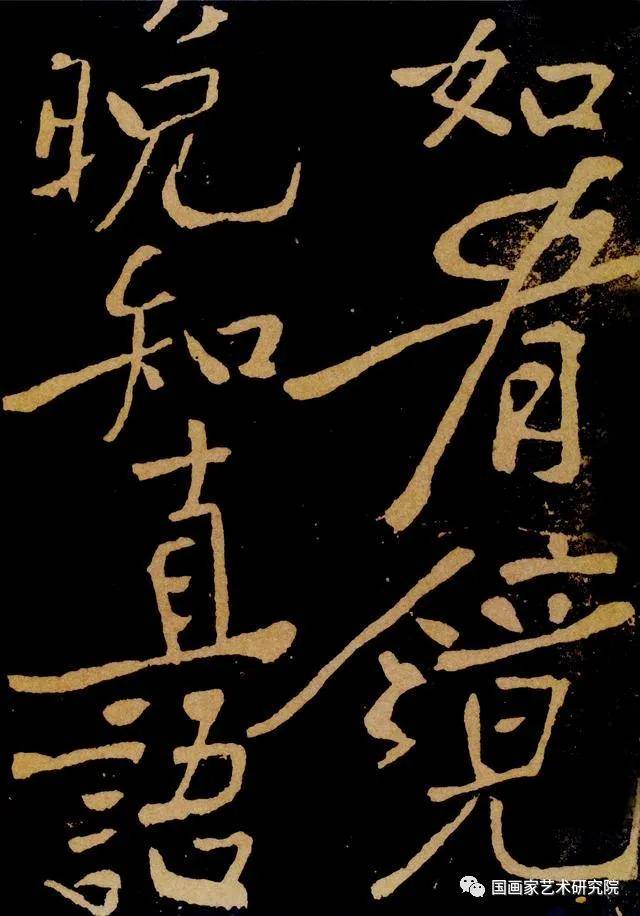 如看鏡
晚知直語
国画家艺术研究院